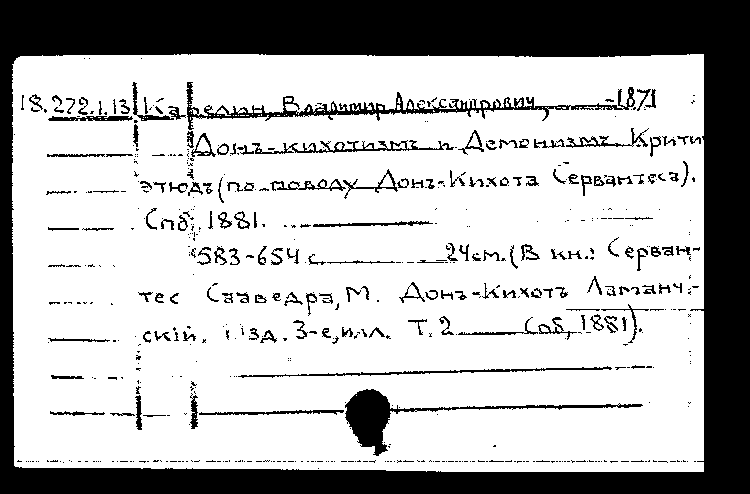 18.272.1.13 Карелин, Владимир Александрович, -1871
Донъ-кихотизмъ и Демонизмъ Крити
этюдъ (по поводу Донъ-Кихота Сервантеса).
Спб, 1881.
583-654 с. 24см. (В кн.: Серван-
тес Сааведра, М. Донъ-Кихотъ Ламанч-
скій. Изд. 3-е, илл. Т. 2 Спб, 1881).